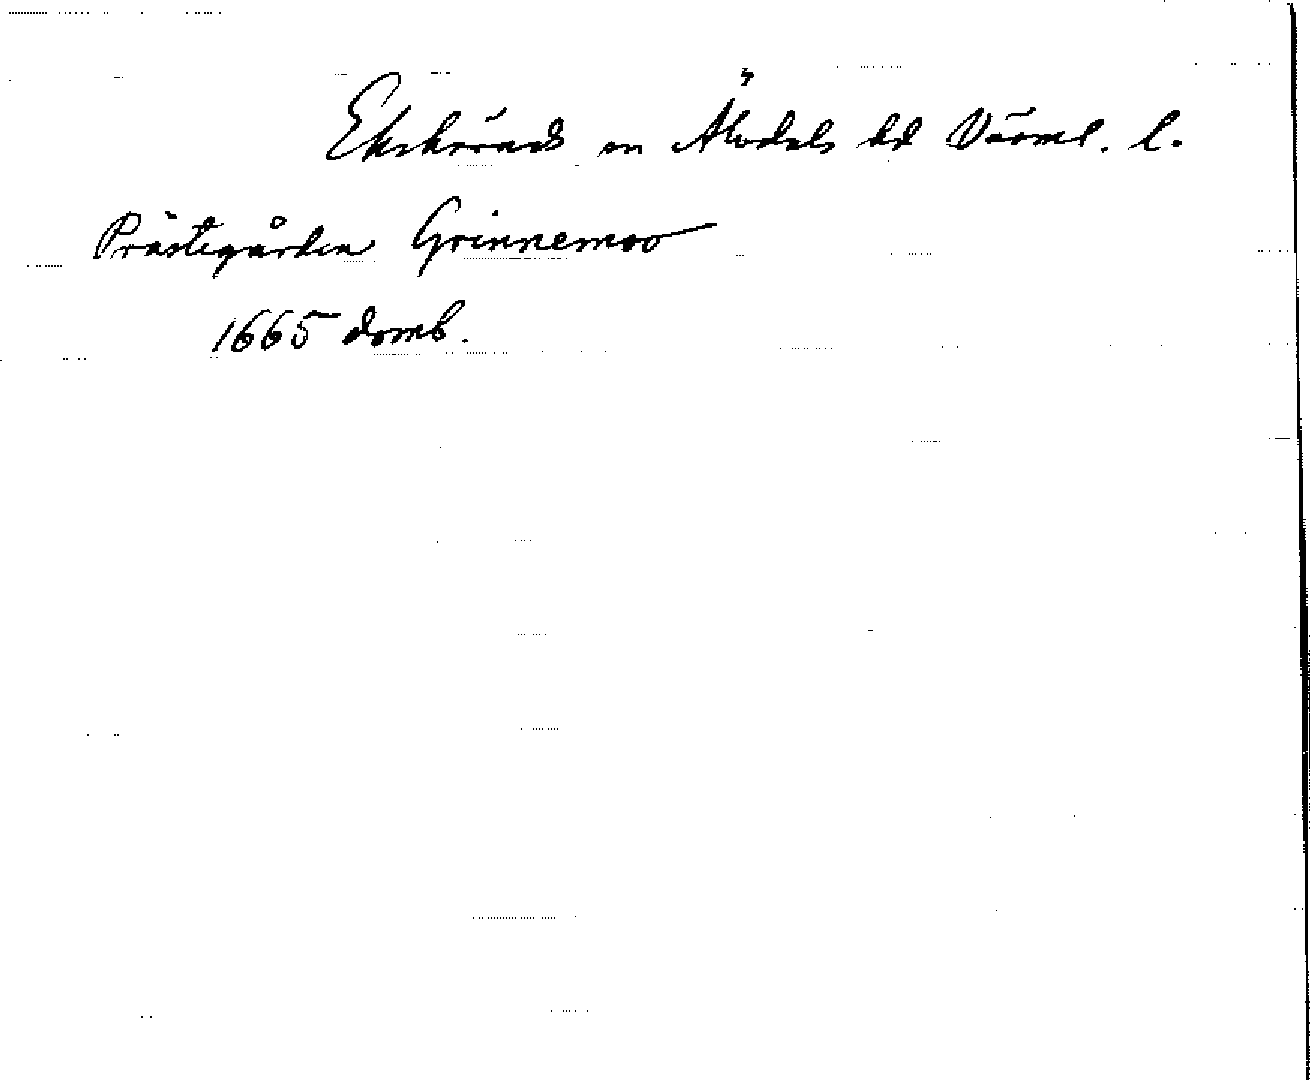 Ekshärads sn Älvdals hd Värml. l.
Prästegården Grinnemoo
1665 domb.